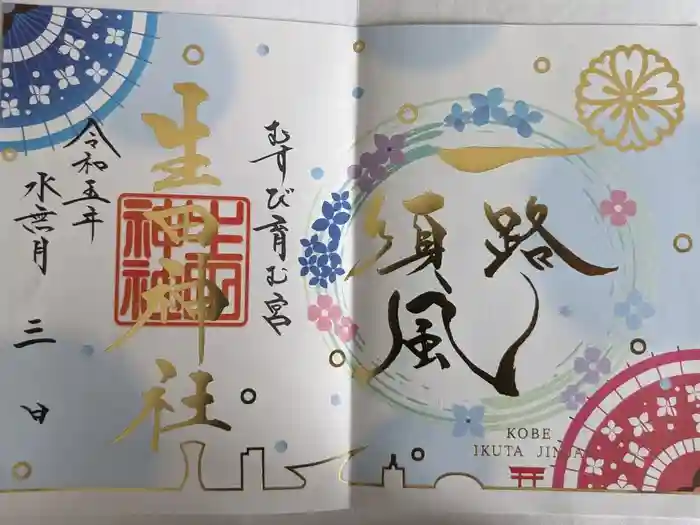 一路順風
KOBE
IKUTA JINJA
むすび育む宮
生田神社
生田神社
令和五年
水無月 三日